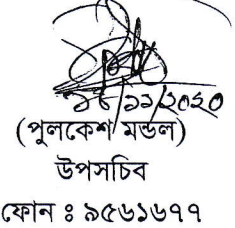 ১৮/১১/২০২০
(পুলকেশ মন্ডল)
উপসচিব
ফোন ঃ ৯৫৬১৬৭৭